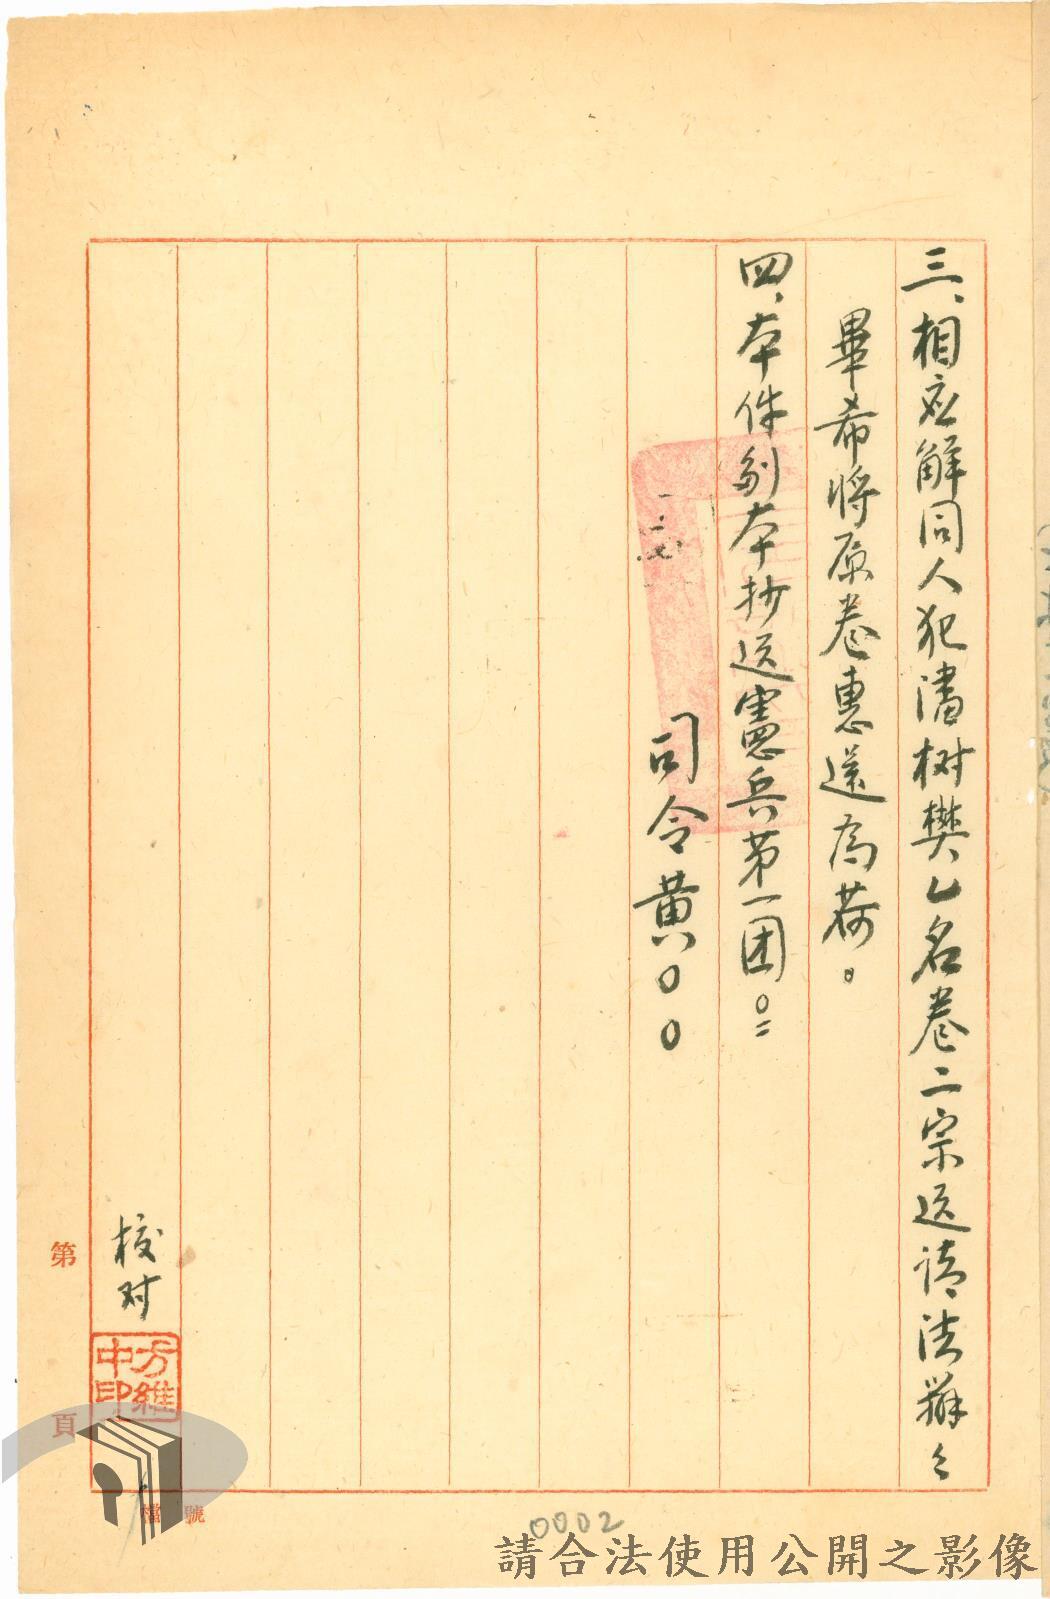 三、相应解同人犯潘树樊乙名卷二宗送请法办々
畢希將原卷惠還為荷。
四、本件副本抄送憲兵第一团。
司令黄〇〇
校对
方維中印
第
頁
檔號
0002
請合法使用公開之影像